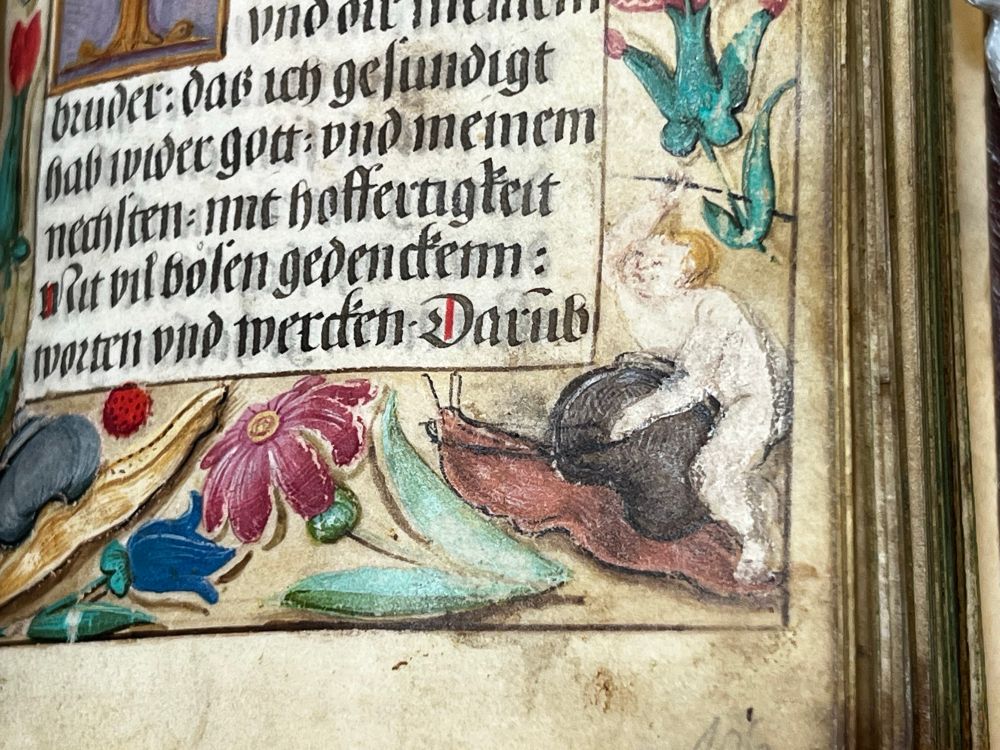 vnd dir meinem
bruder: das ich gesundigt
hab wider gott: vnd meinem
nechsten: mit hoffertigkeit
Mit vil bösen gedenckenn:
worten vnd wercken. Darūb